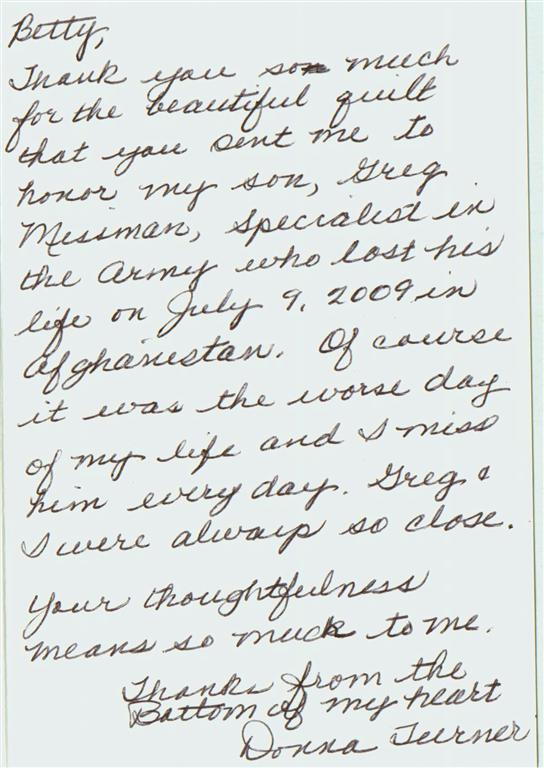 Betty,
Thank you so much
for the beautiful quilt
that you sent me to
honor my son, Greg
Missman, Specialist in
the Army who lost his
life on July 9, 2009 in
Afghanistan. Of course
it was the worse day
of my life and I miss
him every day. Greg &
I were always so close.
Your thoughtfulness
means so much to me.
Thanks from the
Bottom of my heart
Donna Turner